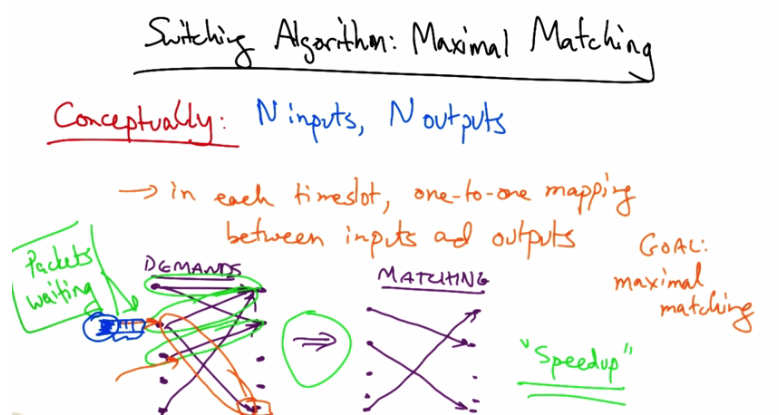 Switching Algorithm: Maximal Matching
Conceptually: N inputs, N outputs
→ in each timeslot, one-to-one mapping
between inputs ad outputs
GOAL:
maximal
matching
Packets
waiting
DEMANDS
⇒
MATCHING
"Speedup"